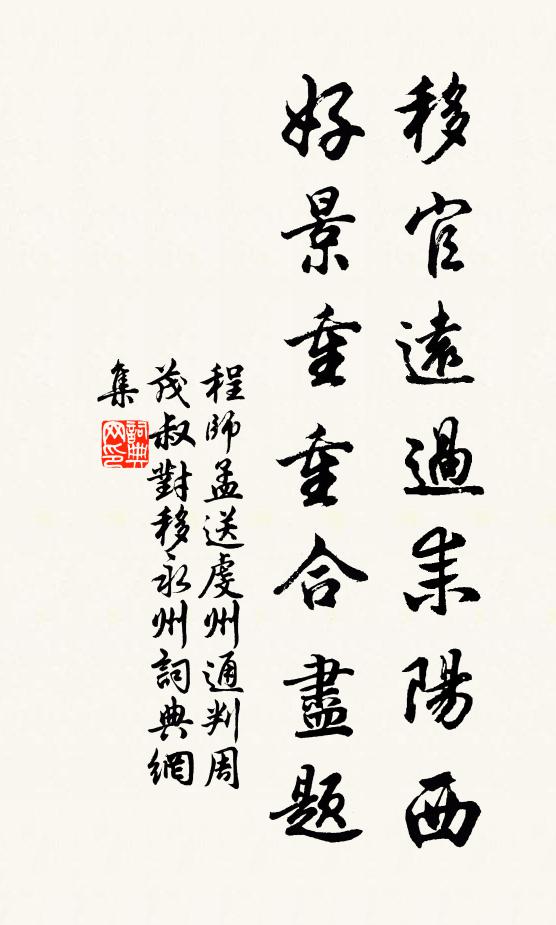 移官遠過耒陽西
好景重重合盡題
程師孟送虔州通判周
茂叔對移永州詞典網
集
詞典
网印